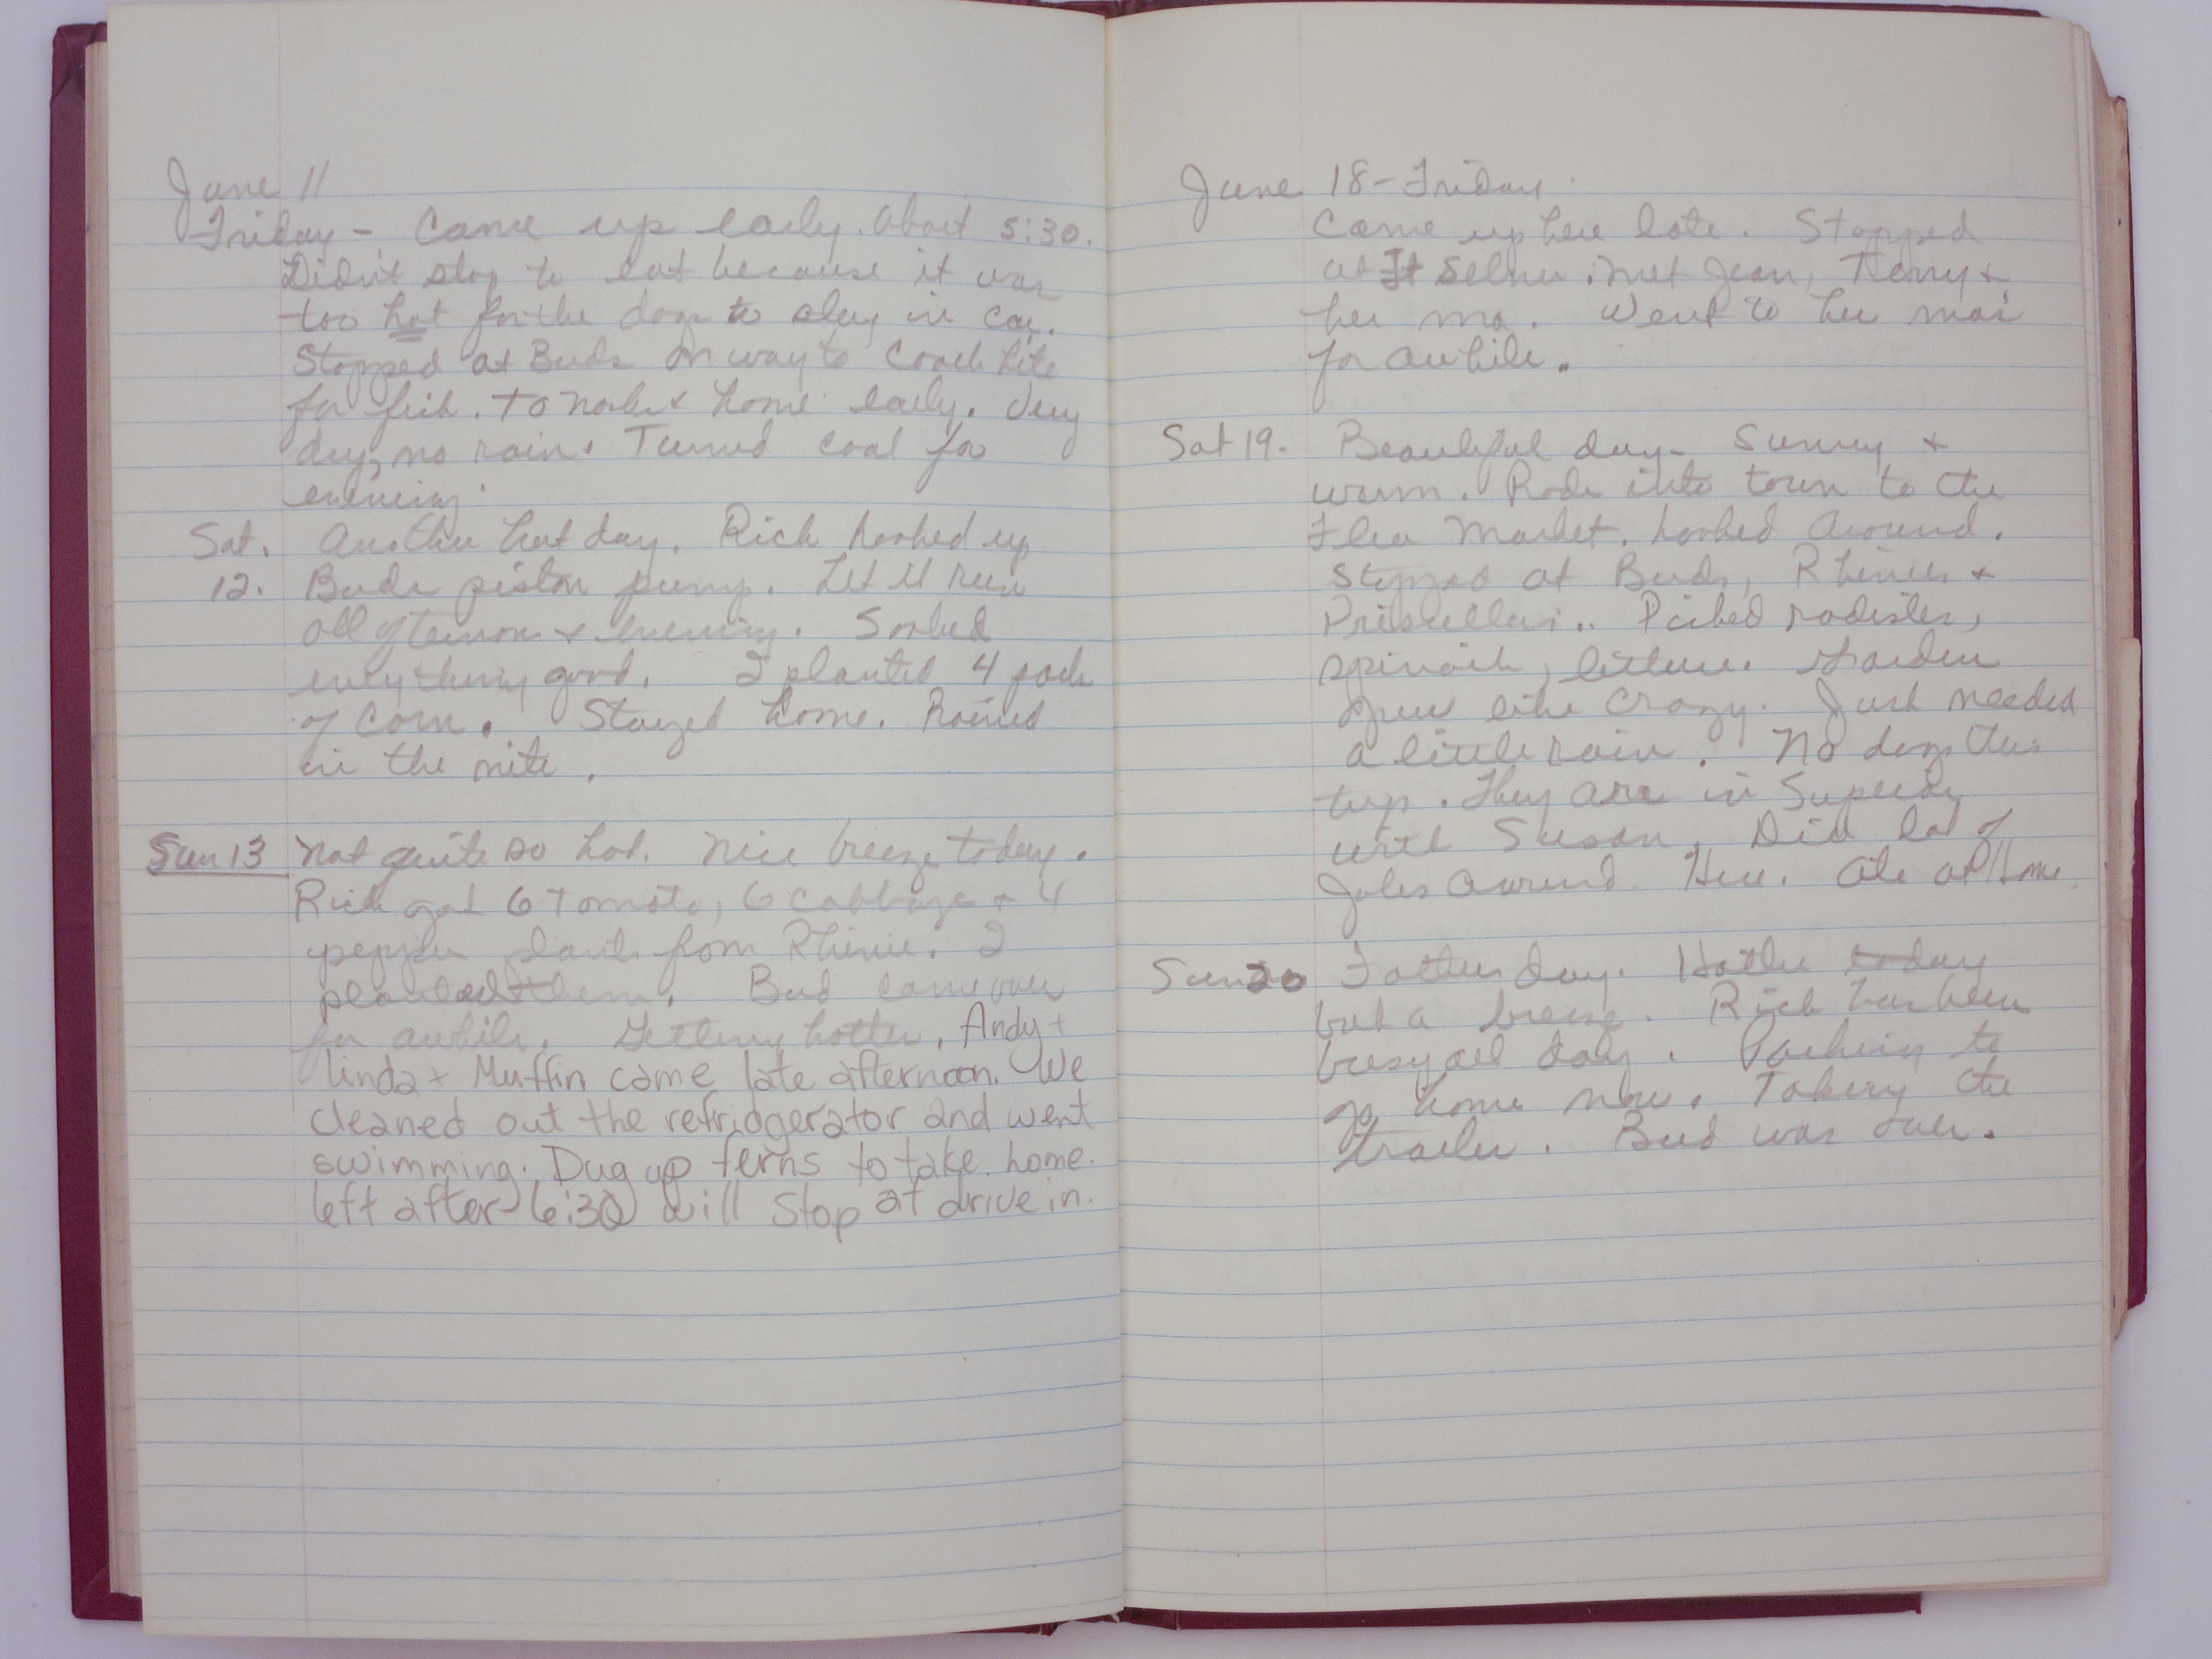 June 11
Friday - Came up early. About 5:30.
Didn't stop to eat because it was
too hot for the dogs to stay in car.
Stopped at Buds on way to Coach Lite
for fish. To & home early. Very
dry, no rain. Turned cool for
evening.
Sat. Another hot day. Rich hooked up
12. Buds piston pump. Let it run
all afternoon & evening. Soaked
everything good. I planted 4 pack
of corn. Stayed home. Rained
in the nite.
Sun 13 Not quite so hot. Nice breeze today.
Rich got 6 tomato, 6 cabbage + 4
pepper plants from Rhinie. I
planted them. Bud came over
for awhile. Getting hotter. Andy +
Linda + Muffin came late afternoon. We
cleaned out the refridgerator and went
swimming. Dug up ferns to take home.
left after 6:30 will stop at drive in.
June 18 - Friday
Came up here late. Stopped
at Selner. met Jean, Terry +
her ma. Went to her ma's
for awhile.
Sat 19. Beautiful day - Sunny +
warm. Rode into town to the
Flea Market. Looked around.
Stopped at Buds, Rhinies +
Priscillas.. Picked radishes,
spinach, lettuce. Garden
grew like crazy. Just needed
a little rain. No dogs this
trip. They are in
with Susan. Did lot of
jobs around here. Ate at Home.
Sun 20 Fathers day. Hotter today
but a breeze. Rich has been
busy all day. Packing to
go home now. Taking the
trailer. Bud was over.